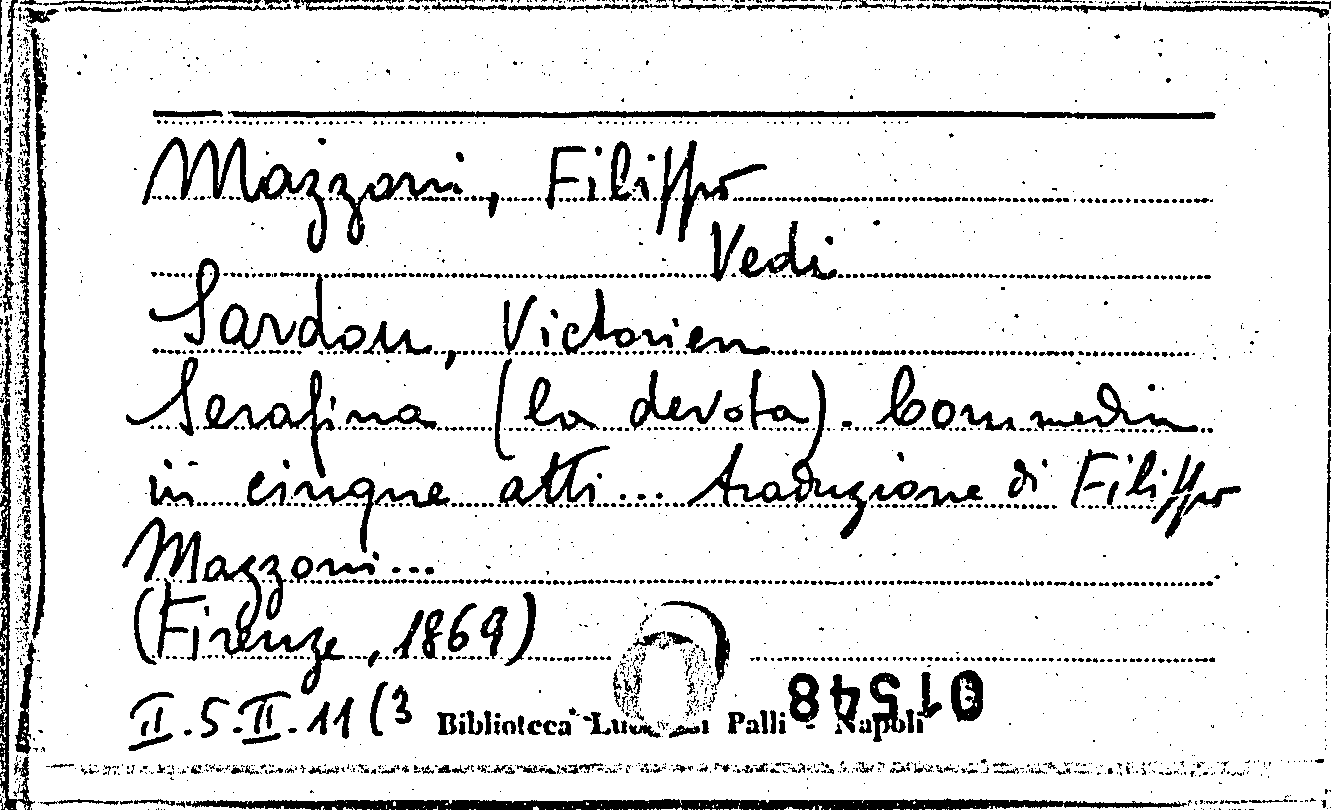 Mazzoni, Filippo
Vedi
Sardou, Victorien
Serafina (la devota). Commedia
in cinque atti... traduzione di Filippo
Mazzoni...
(Firenze, 1869)
II.5.II.11(3 Biblioteca Palli - Napoli
01548